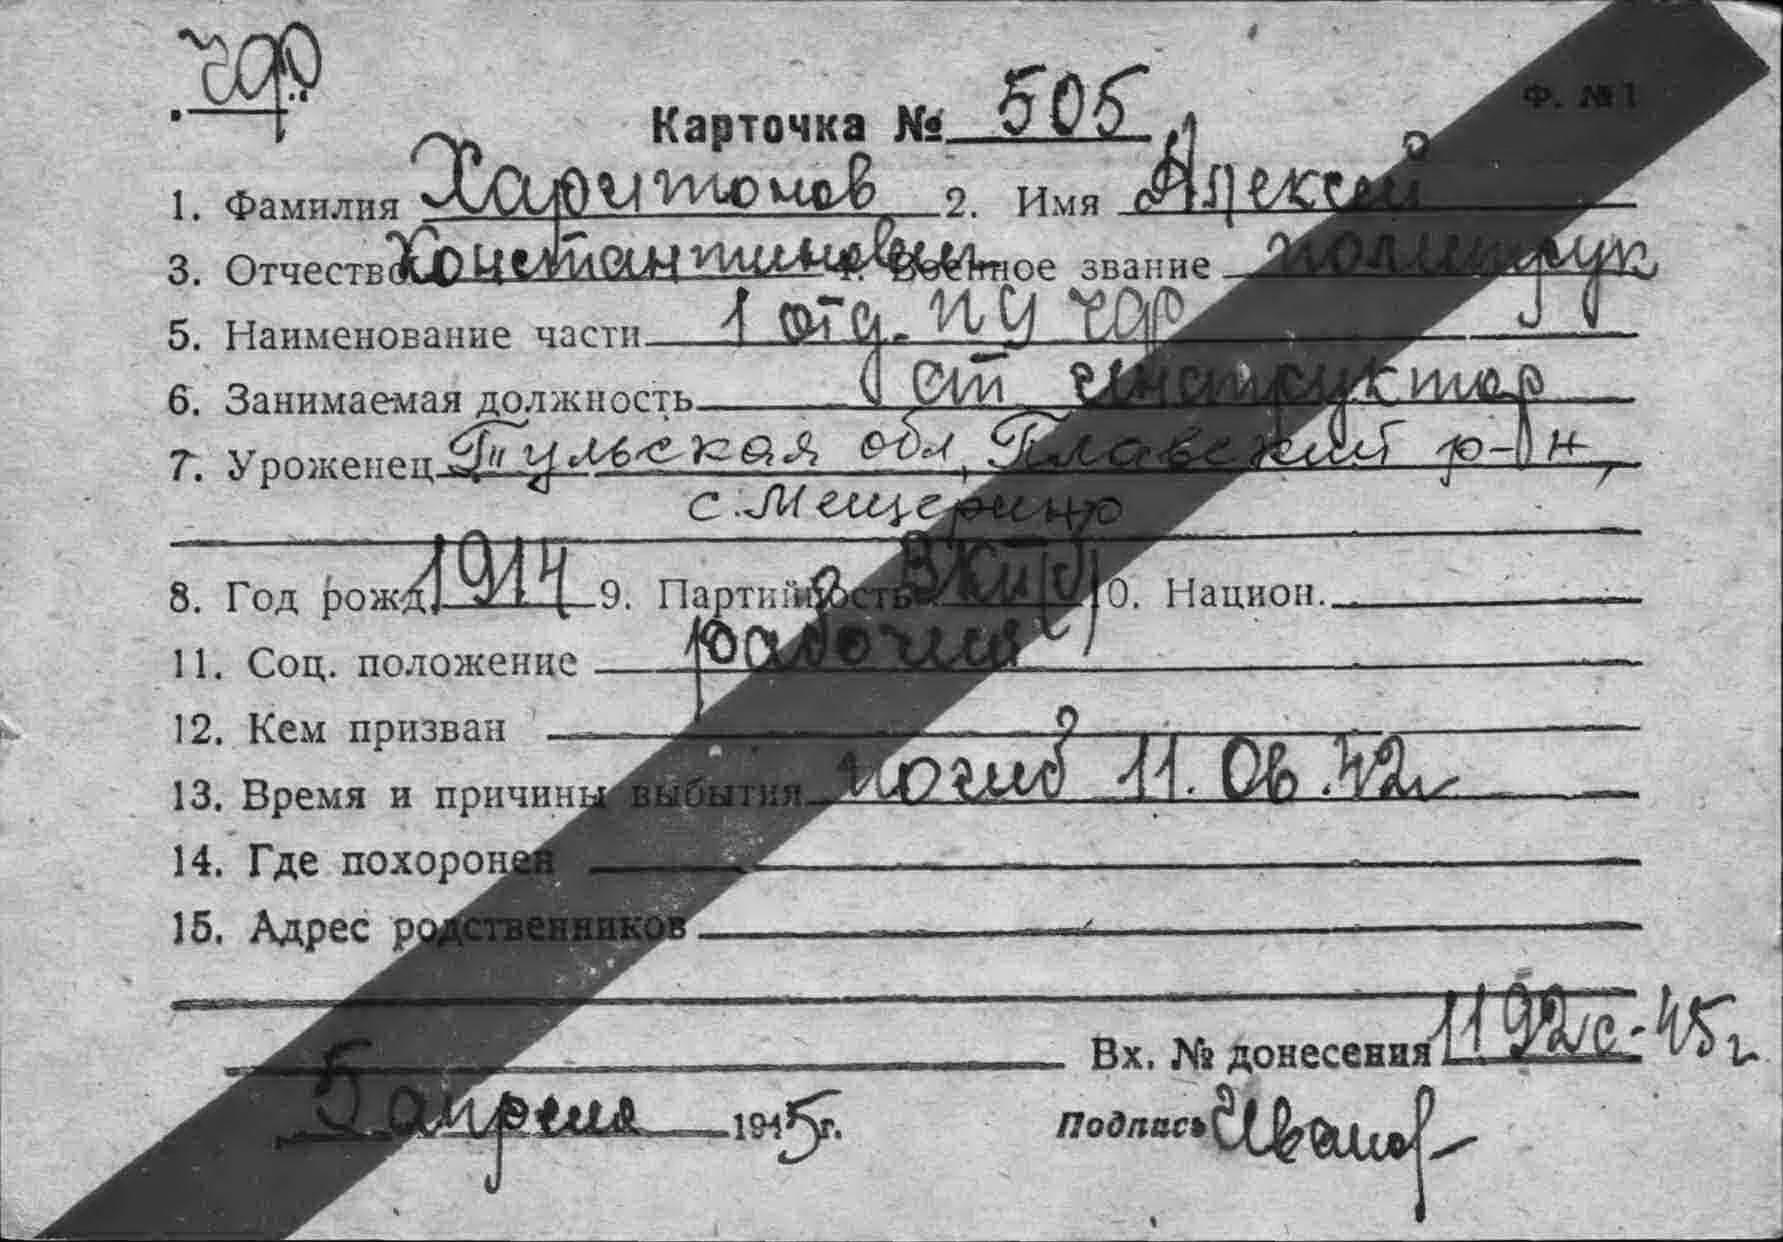 ЧФ
Ф. № 1
Карточка № 505
1. Фамилия Харитонов 2. Имя Алексей
3. Отчество Константинович 4. Военное звание политрук
5. Наименование части 1 отд. ПУ ЧФ
6. Занимаемая должность ст инструктор
7. Уроженец Тульская обл, Плавский р-он,
с. Мещерино
8. Год рожд. 1914 9. Партийность ВКП(б) 10. Национ.
11. Соц. положение рабочий
12. Кем призван
13. Время и причины выбытия погиб 11.06.42г
14. Где похоронен
15. Адрес родственников
Вх. № донесения 1192с-45г
5 апреля 1945г. Подпись Иванов